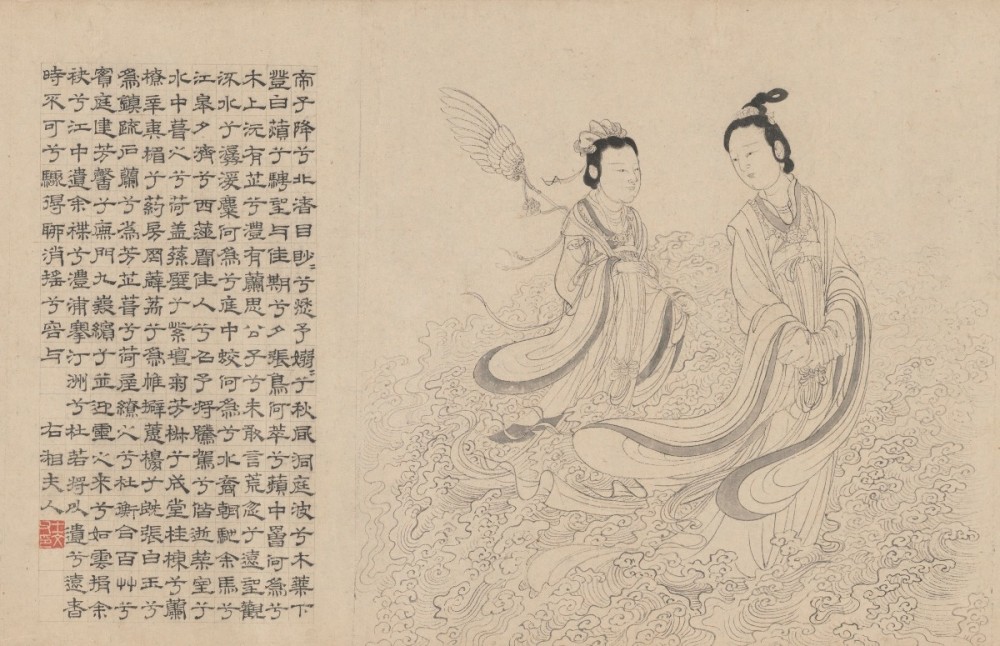 帝子降兮北渚目眇〻兮愁予嫋〻兮秋風洞庭波兮木葉下
登白薠兮騁望与佳期兮夕張鳥何萃兮蘋中罾何為兮
木上沅有芷兮澧有蘭思公子兮未敢言荒忽兮遠望觀
流水兮潺湲麋何為兮庭中蛟何為兮水裔朝馳余馬兮
江皋夕濟兮西澨聞佳人兮召予將騰駕兮偕逝築室兮
水中葺之兮荷盖蓀壁兮紫壇匊芳椒兮成堂桂棟兮蘭
橑辛夷楣兮葯房罔薜荔兮為帷擗蕙櫋兮既張白玉兮
為鎮疏石蘭兮為芳芷葺兮荷屋繚之兮杜衡合百艸兮
實庭建芳馨兮廡門九嶷繽兮並迎靈之來兮如雲捐余
袂兮江中遺余褋兮澧浦搴汀洲兮杜若將以遺兮遠者
時不可兮驟得聊消摇兮容与 右湘夫人